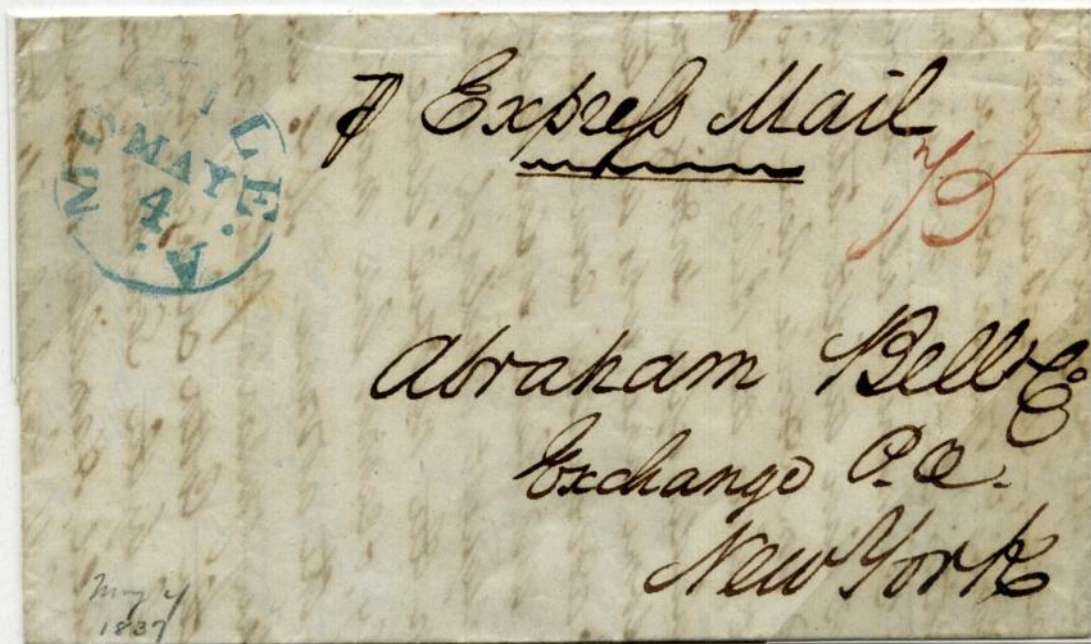 MOBILE. A.
MAY
4
⅌ Express Mail
75
Abraham Bell & Co
Exchange P.O.
New York
May 4
1837